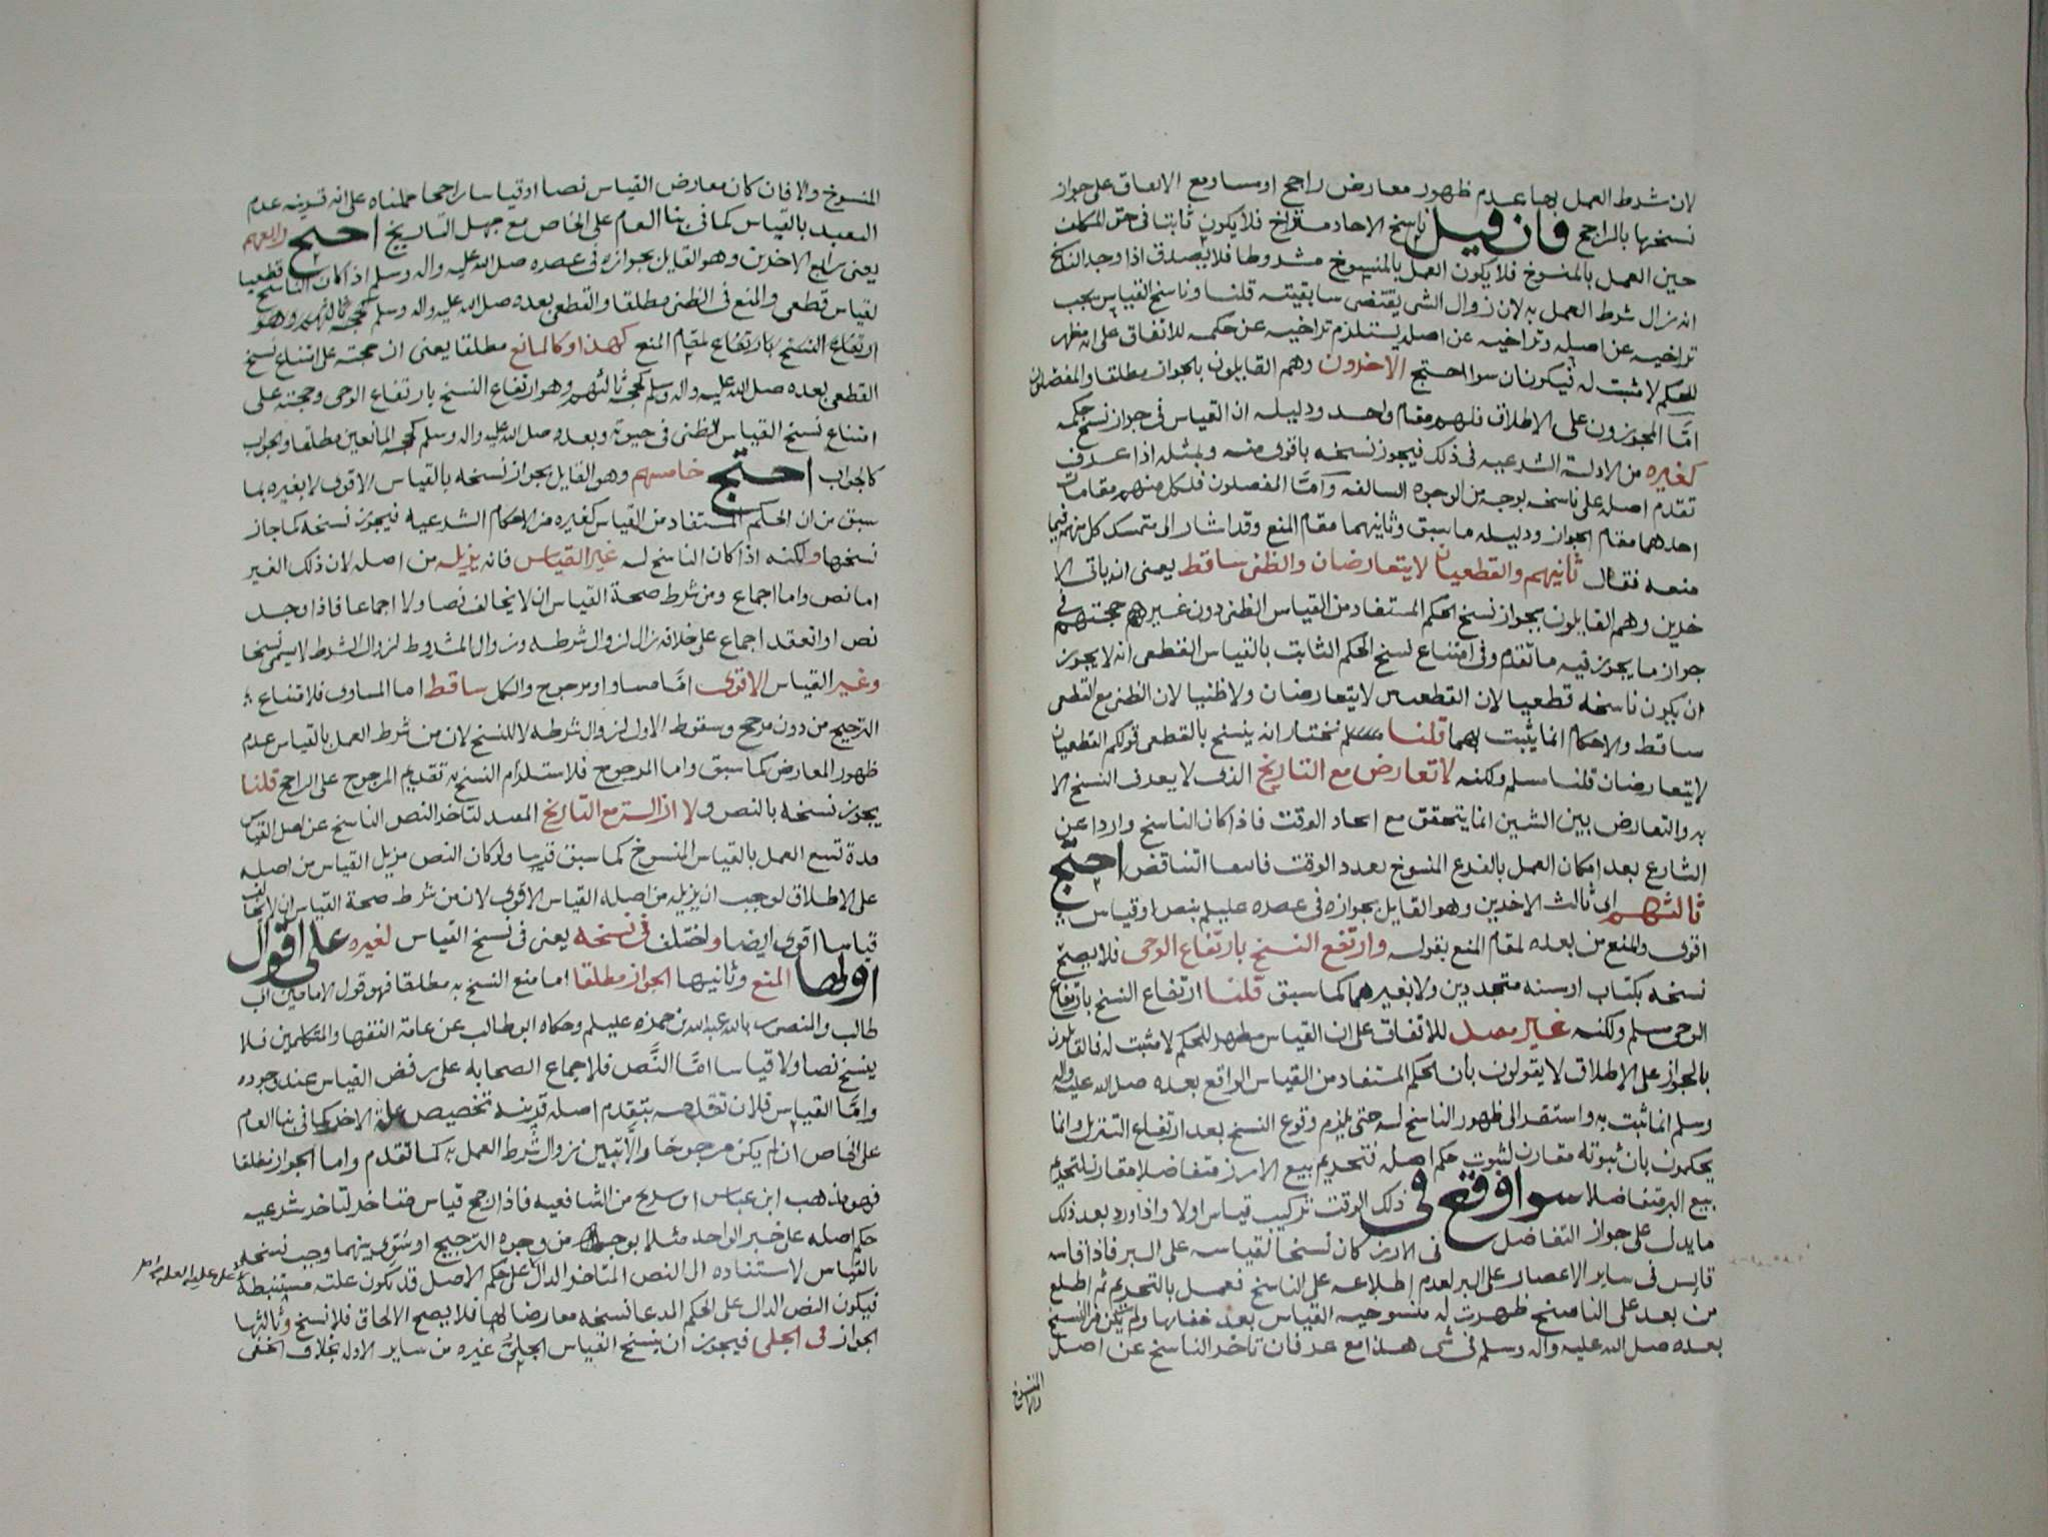 لان شرط العمل بها عدم ظهور معارض راجح او مساو مع الاتفاق على جواز
نسخها بالراجح فان قيل ناسخ الاحاد متراخ فلا يكون ثابتا فى حق المكلف
حين العمل بالمنسوخ فلا يكون العمل بالمنسوخ مشروطا فلا يصدق اذا وجد الناسخ
انه زال شرط العمل به لان زوال الشى يقتضى سابقيته قلنا وناسخ القياس يجب
تراخيه عن اصله وتراخيه عن اصله يستلزم تراخيه عن حكمه للاتفاق على انه مظهر
للحكم لا مثبت له فيكونان سوا احتج الاخرون وهم القايلون بالجواز مطلقا والمفصلون
امّا المجوزون على الاطلاق فلهم مقام واحد ودليله ان القياس فى جواز نسخ حكمه
كغيره من الادلة الشرعيه فى ذلك فيجوز نسخه باقوى منه وبمثله اذا عرف
تقدم اصله على ناسخه بوجه من الوجوه السالفه وامّا المفصلون فلكل منهم مقامان
احدهما مقام الجواز ودليله ما سبق وثانيهما مقام المنع وقد اشار الى متمسك كل منهم فيما
منعه فقال ثانيهم والقطعيان لا يتعارضان والظنى ساقط يعنى ان ثانى الا
خرين وهم القايلون بجواز نسخ الحكم المستفاد من القياس الظنى دون غيره حجتهم فى
جواز ما يجوز فيه ما تقدم وفى امتناع نسخ الحكم الثابت بالقياس القطعى انه لا يجوز
ان يكون ناسخه قطعيا لان القطعيين لا يتعارضان ولا ظنيا لان الظنى مع القطعى
ساقط والاحكام انما يثبت بهما قلنا نختار انه ينسخ بالقطعى قولكم القطعيان
لا يتعارضان قلنا مسلم ولكنه لا تعارض مع التاريخ الذى لا يعرف النسخ الا
به والتعارض بين الشيين انما يتحقق مع اتحاد الوقت فاذا كان الناسخ واردا عن
الشارع بعد امكان العمل بالفرع المنسوخ تعدد الوقت فانتفا التناقض احتج
ثالثهم اى ثالث الاخرين وهو القايل بجوازه فى عصره عليلم بنص او قياس
اقوى والمنع من بعده لمقام المنع بقوله وارتفع النسخ بارتفاع الوحى فلا يصح
نسخه بكتاب او سنه متجددين ولا بغيرهما كما سبق قلنا ارتفاع النسخ بارتفاع
الوحى مسلم ولكنه غير مصل للاتفاق على ان القياس مظهر للحكم لا مثبت له فالقايلون
بالجواز على الاطلاق لا يقولون بأن الحكم المستفاد من القياس الواقع بعده صلى الله عليه واله
وسلم انما ثبت به واستقر الى ظهور الناسخ له حتى يلزم وقوع النسخ بعد ارتفاع التنزيل وانما
يحكمون بان ثبوته مقارن لثبوت حكم اصله فتحريم بيع الارز متفاضلا مقارن لتحريم
بيع البر متفاضلا سوا وقع فى ذلك الوقت تركيب قياس اولا واذا ورد بعد ذلك
ما يدل على جواز التفاضل فى الارز كان نسخا لقياسه على البر فاذا قاسه
قايس فى ساير الاعصار على البر لعدم اطلاعه على الناسخ فعمل بالتحريم ثم اطلع
من بعد على الناسخ ظهرت له منسوخيه القياس بعد خفايها ولم يكن من النسخ
بعده صلى الله عليه واله وسلم فى شى هذا مع عرفان تاخر الناسخ عن اصل
المنسوخ
والا فان
المنسوخ والا فان كان معارض القياس نصا او قياسا راجحا حملناه على انه قرينه عدم
التعبد بالقياس كما فى بنا العام على الخاص مع جهل التاريخ احتج رابعهم
يعنى رابع الاخرين وهو القايل بجوازه فى عصره صلى الله عليه واله وسلم اذا كان الناسخ قطعيا
لقياس قطعى والمنع فى الظنى مطلقا والقطعى بعده صلى الله عليه واله وسلم كحجة ثالثهم وهو
ارتفاع النسخ بارتفاع لمقام المنع كهذا وكالمانع مطلقا يعنى ان حجته على امتناع نسخ
القطعى بعده صلى الله عليه واله وسلم كحجة ثالثهم وهو ارتفاع النسخ بارتفاع الوحى وحجته على
امتناع نسخ القياس الظنى فى حيوته وبعده صلى الله عليه واله وسلم كحجه المانعين مطلقا والجواب
كالجواب احتج خامسهم وهو القايل بجواز نسخه بالقياس الاقوى لا بغيره بما
سبق من ان الحكم المستفاد من القياس كغيره من الاحكام الشرعيه فيجوز نسخه كما جاز
نسخها ولكنه اذا كان الناسخ له غير القياس فانه يزيله من اصله لان ذلك الغير
اما نص واما اجماع ومن شرط صحة القياس ان لا يخالف نصا ولا اجماعا فاذا وجد
نص او انعقد اجماع على خلافه زال لزوال شرطه وزوال المشروط لزوال الشرط لا يسمى نسخا
وغير القياس الاقوى امّا مساو او مرجوح والكل ساقط اما المساوى فلامتناع
الترجيح من دون مرجح وسقوط الاول لزوال شرطه لا للنسخ لان من شرط العمل بالقياس عدم
ظهور المعارض كما سبق واما المرجوح فلاستلزام النسخ به تقديم المرجوح على الراجح قلنا
يجوز نسخه بالنص ولا ازالة مع التاريخ المفيد لتاخر النص الناسخ عن اصل القياس
مدة تسع العمل بالقياس المنسوخ كما سبق قريبا ولو كان النص مزيل القياس من اصله
على الاطلاق لوجب ان يزيله من اصله القياس الاقوى لان من شرط صحة القياس ان لا يخالف
قياسا اقوى ايضا واختلف فى نسخه يعنى فى نسخ القياس لغيره على اقوال
اولها المنع وثانيها الجواز مطلقا اما منع النسخ به مطلقا فهو قول الامامين ابى
طالب والمنصور بالله عبدالله بن حمزه عليلم وحكاه ابو طالب عن عامة الفقها والمتكلمين فلا
ينسخ نصا ولا قياسا امّا النَّص فلاجماع الصحابه على رفض القياس عند وجوده
وامّا القياس فلان تقدمه بتقدم اصله قرينة تخصيص علة الاخر كما فى بنا العام
على الخاص ان لم يكن مرجوحا والّا تبين زوال شرط العمل به كما تقدم واما الجواز مطلقا
فهو مذهب ابن عباس ابن سريج من الشافعيه فاذا رجح قياس متاخر لتاخر شرعيه
حكم اصله على خبر الواحد مثلا بوجه من وجوه الترجيح او سُوّى بينهما وجب نسخه
بالقياس لاستناده الى النص المتاخر الدال على حكم الاصل قد يكون علته مستنبطة
فيكون النص الدال على الحكم المدعا نسخه معارضا لها فلا يصح الالحاق فلا نسخ وثالثها
الجواز فى الجلى فيجوز ان ينسخ القياس الجلىُّ غيره من ساير الادله بخلاف الخفى